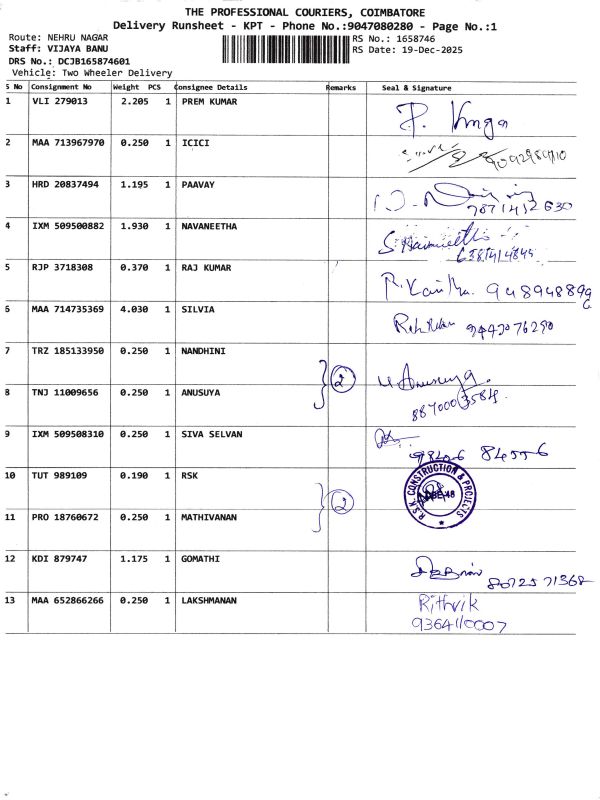 THE PROFESSIONAL COURIERS, COIMBATORE
Delivery Runsheet - KPT - Phone No.:9047080280 - Page No.:1
Route: NEHRU NAGAR
RS No.: 1658746
Staff: VIJAYA BANU
RS Date: 19-Dec-2025
DRS No.: DCJB165874601
Vehicle: Two Wheeler Delivery
S No Consignment No Weight PCS Consignee Details Remarks Seal & Signature
1 VLI 279013 2.205 1 PREM KUMAR P.
2 MAA 713967970 0.250 1 ICICI
3 HRD 20837494 1.195 1 PAAVAY
7871412630
4 IXM 509500882 1.930 1 NAVANEETHA S. Navaneetha
6381414845
5 RJP 3718308 0.370 1 RAJ KUMAR R. 948948899
6 MAA 714735369 4.030 1 SILVIA 9443076290
7 TRZ 185133950 0.250 1 NANDHINI
2 Anusuya.
8 TNJ 11009656 0.250 1 ANUSUYA
8870003584
9 IXM 509508310 0.250 1 SIVA SELVAN
98406 84556
10 TUT 989109 0.190 1 RSK
R.S.K. CONSTRUCTION & PROJECTS
2
11 PRO 18760672 0.250 1 MATHIVANAN
12 KDI 879747 1.175 1 GOMATHI
8072571368
13 MAA 652866266 0.250 1 LAKSHMANAN Rithvik
9364110007